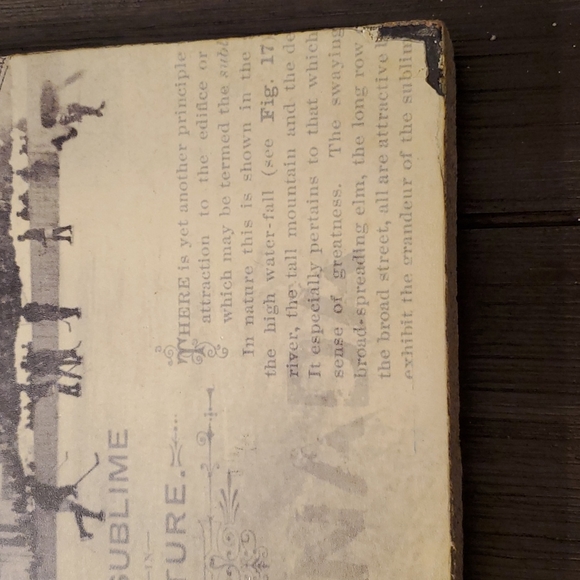 SUBLIME
IN
TURE.
THERE is yet another principle
attraction to the edifice or
which may be termed the subl
In nature this is shown in the
the high water-fall (see Fig. 17)
river, the tall mountain and the de
It especially pertains to that which
sense of greatness. The swaying
broad-spreading elm, the long row
the broad street, all are attractive
exhibit the grandeur of the sublim